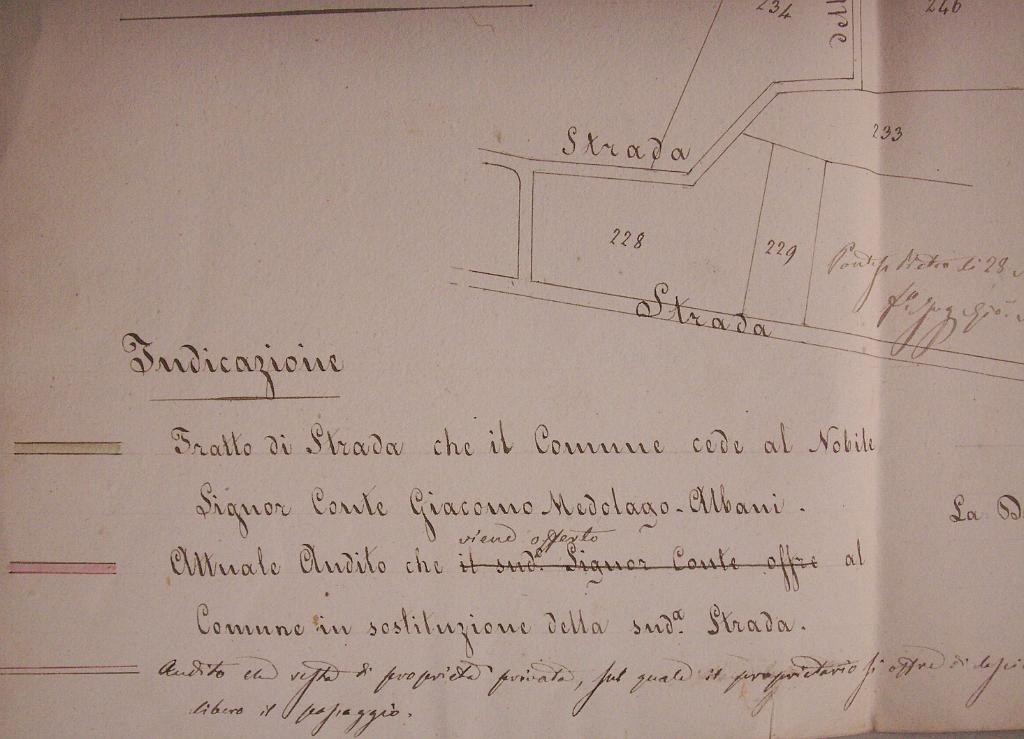 234
246
Strada
233
228
229
Pietro di 28
Strada
Indicazione
Tratto di Strada che il Comune cede al Nobile
Signor Conte Giacomo Medolago-Albani.
viene offerto
Attuale Andito che il sud.º Signor Conte offre al
Comune in sostituzione della sud.ª Strada.
La
Andito che resta di proprietà privata, sul quale il proprietario si offre di
libero il passaggio.